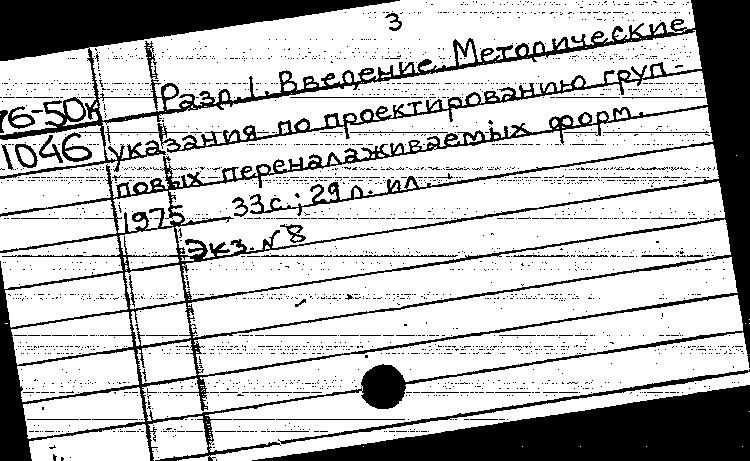 3
76-50к Разд. 1. Введение. Методические
1046 указания по проектированию груп-
повых переналаживаемых форм.
1975. 33 с.; 29 л. ил.
Экз. № 8